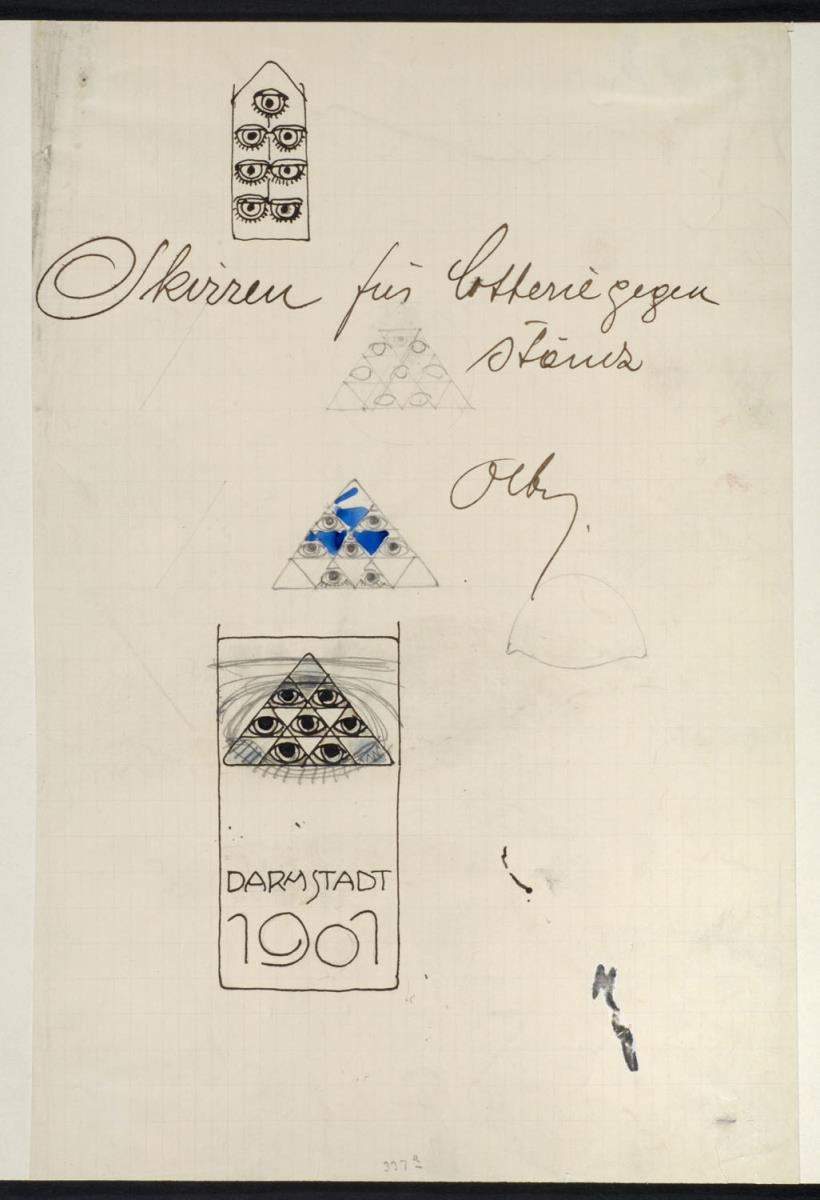 Skizzen für Lotteriegegen
stände
Olby
DARMSTADT
1901
337